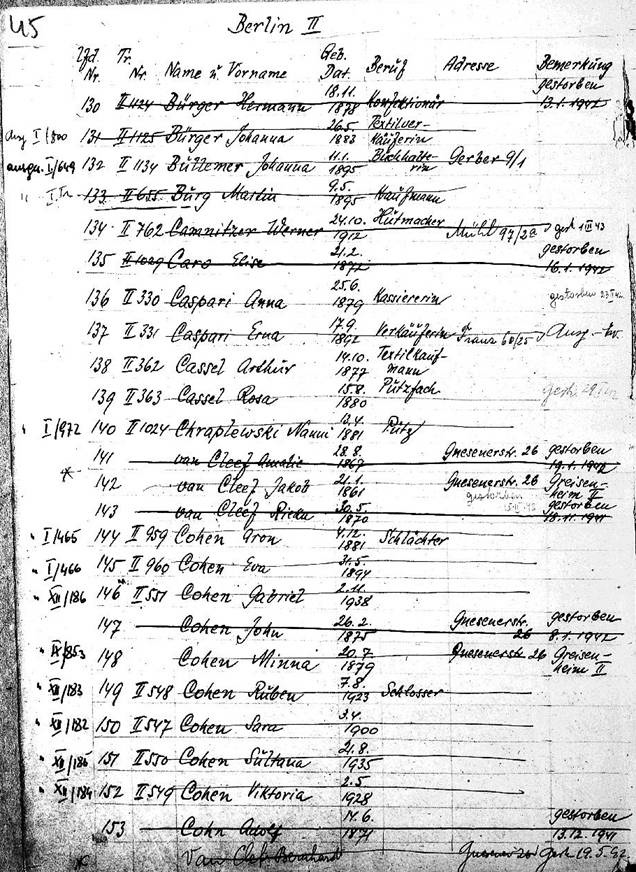 45
Berlin II
Lfd. Nr. Tr. Nr. Name u. Vorname Geb. Dat. Beruf Adresse Bemerkung
130 II 1124 Bürger Hermann 18.11. 1878 Konfektionär gestorben 13.1.1942
Ausg I/800 131 II 1125 Bürger Johanna 26.5. 1883 Textilverkäuferin
ausgen. I/649 132 II 1134 Büttemer Johanna 11.1. 1895 Buchhalterin Gerber 9/1
133 II 655 Burg Martin 9.5. 1895 Kaufmann
134 II 762 Camnitzer Werner 24.10. 1912 Hutmacher Mühl 97/2a gest 1 III 43
135 II 1029 Caro Elise 21.2. 1872 gestorben 16.1.1942
136 II 330 Caspari Anna 25.6. 1879 Kassiererin gestorben
137 II 331 Caspari Erna 17.9. 1892 Verkäuferin Franz 60/25
138 II 362 Cassel Arthur 14.10. 1877 Textilkaufmann
139 II 363 Cassel Rosa 15.8. 1880 Putzfach
I/972 140 II 1024 Chraplewski Nanni 13.4. 1881 Putz
141 van Cleef Amalie 28.8. 1867 Gnesenerstr. 26 gestorben 19.1.1942
* 142 van Cleef Jakob 21.1. 1861 Gnesenerstr. 26 Greisenheim II gestorben
143 van Cleef Rieka 30.5. 1870 gestorben 18.11.1941
I/465 144 II 959 Cohen Aron 4.12. 1881 Schlächter
I/466 145 II 960 Cohen Eva 31.5. 1894
XII/186 146 II 551 Cohen Gabriel 2.11. 1938
147 Cohen John 26.2. 1875 Gnesenerstr. 26 gestorben 8.1.1942
IX/353 148 Cohen Minna 20.7. 1879 Gnesenerstr. 26 Greisenheim II
XII/183 149 II 548 Cohen Ruben 7.8. 1923 Schlosser
XII/182 150 II 547 Cohen Sara 3.4. 1900
XII/185 151 II 550 Cohen Sultana 21.8. 1935
XII/184 152 II 549 Cohen Viktoria 2.5 1928
153 Cohn Adolf 14.6. 1871 gestorben 13.12.1941
* Van Clef Bernhard 19.5.42